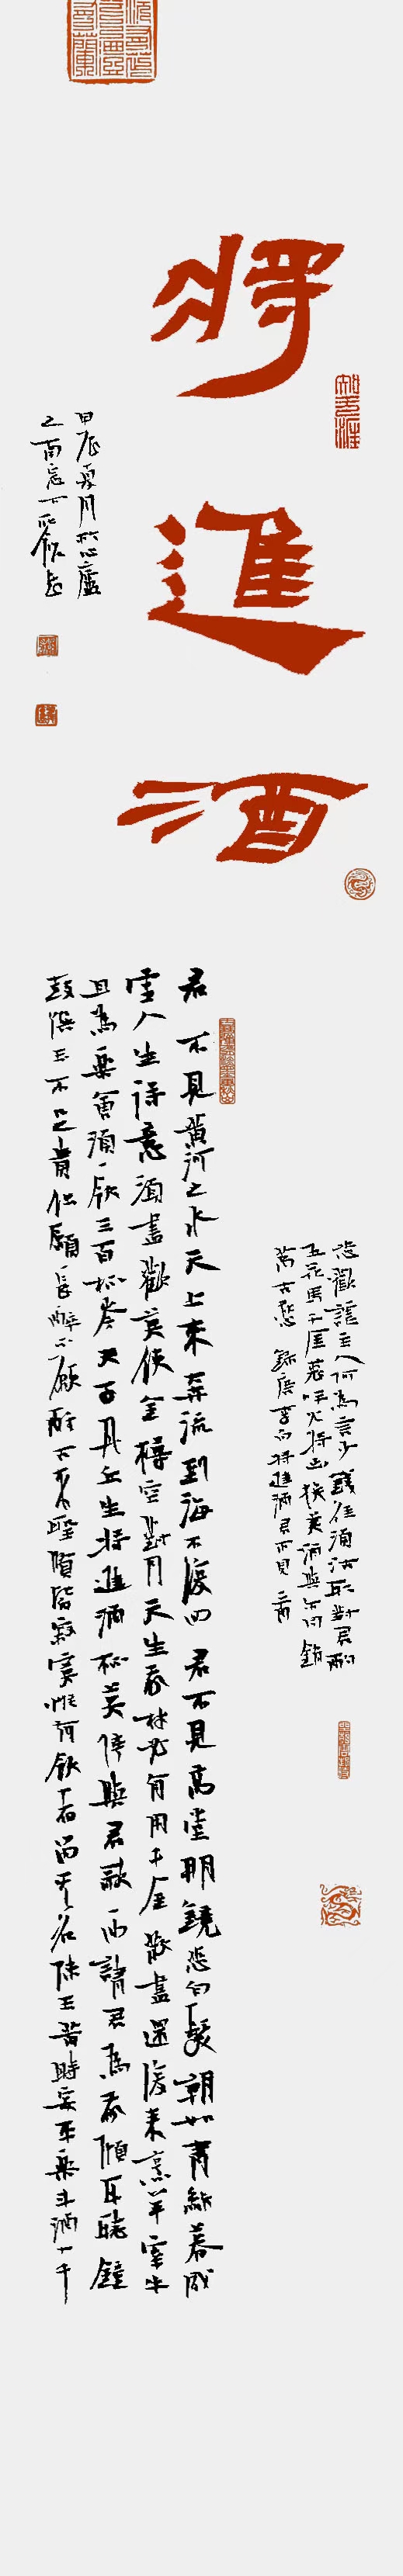 將進酒
君不見黃河之水天上來奔流到海不復回君不見高堂明鏡悲白髮朝如青絲暮成
雪人生得意須盡歡莫使金樽空對月天生我材必有用千金散盡還復來烹羊宰牛
且為樂會須一飲三百杯岑夫子丹丘生將進酒杯莫停與君歌一曲請君為我傾耳聽鐘
鼓饌玉不足貴但願長醉不願醒古來聖賢皆寂寞惟有飲者留其名陳王昔時宴平樂斗酒十千
恣歡謔主人何為言少錢徑須沽取對君酌
五花馬千金裘呼兒將出換美酒與爾同銷
萬古愁 錄唐李白將進酒君不見 二首
甲辰夏月於心廬
之南窗下